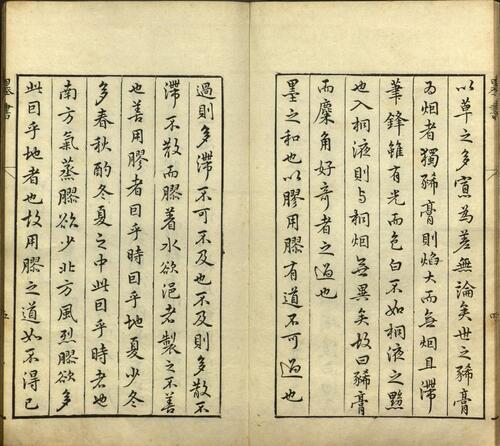 以草之多寡為差無論矣世之豨膏
為烟者獨豨膏則焰大而無烟且滯
筆鋒雖有光而色白不如桐液之黯
也入桐液則与桐烟無異矣故曰豨膏
而麋角好奇者之過也
墨之和也以膠用膠有道不可過也
過則多滯不可不及也不及則多散不
滯不散而膠著水欲浥者製之不善
也善用膠者曰乎時曰乎地夏少冬
多春秋酌冬夏之中此曰乎時者也
南方氣蒸膠欲少北方風烈膠欲多
此曰乎地者也故用膠之道如不得已
墨書
四
五